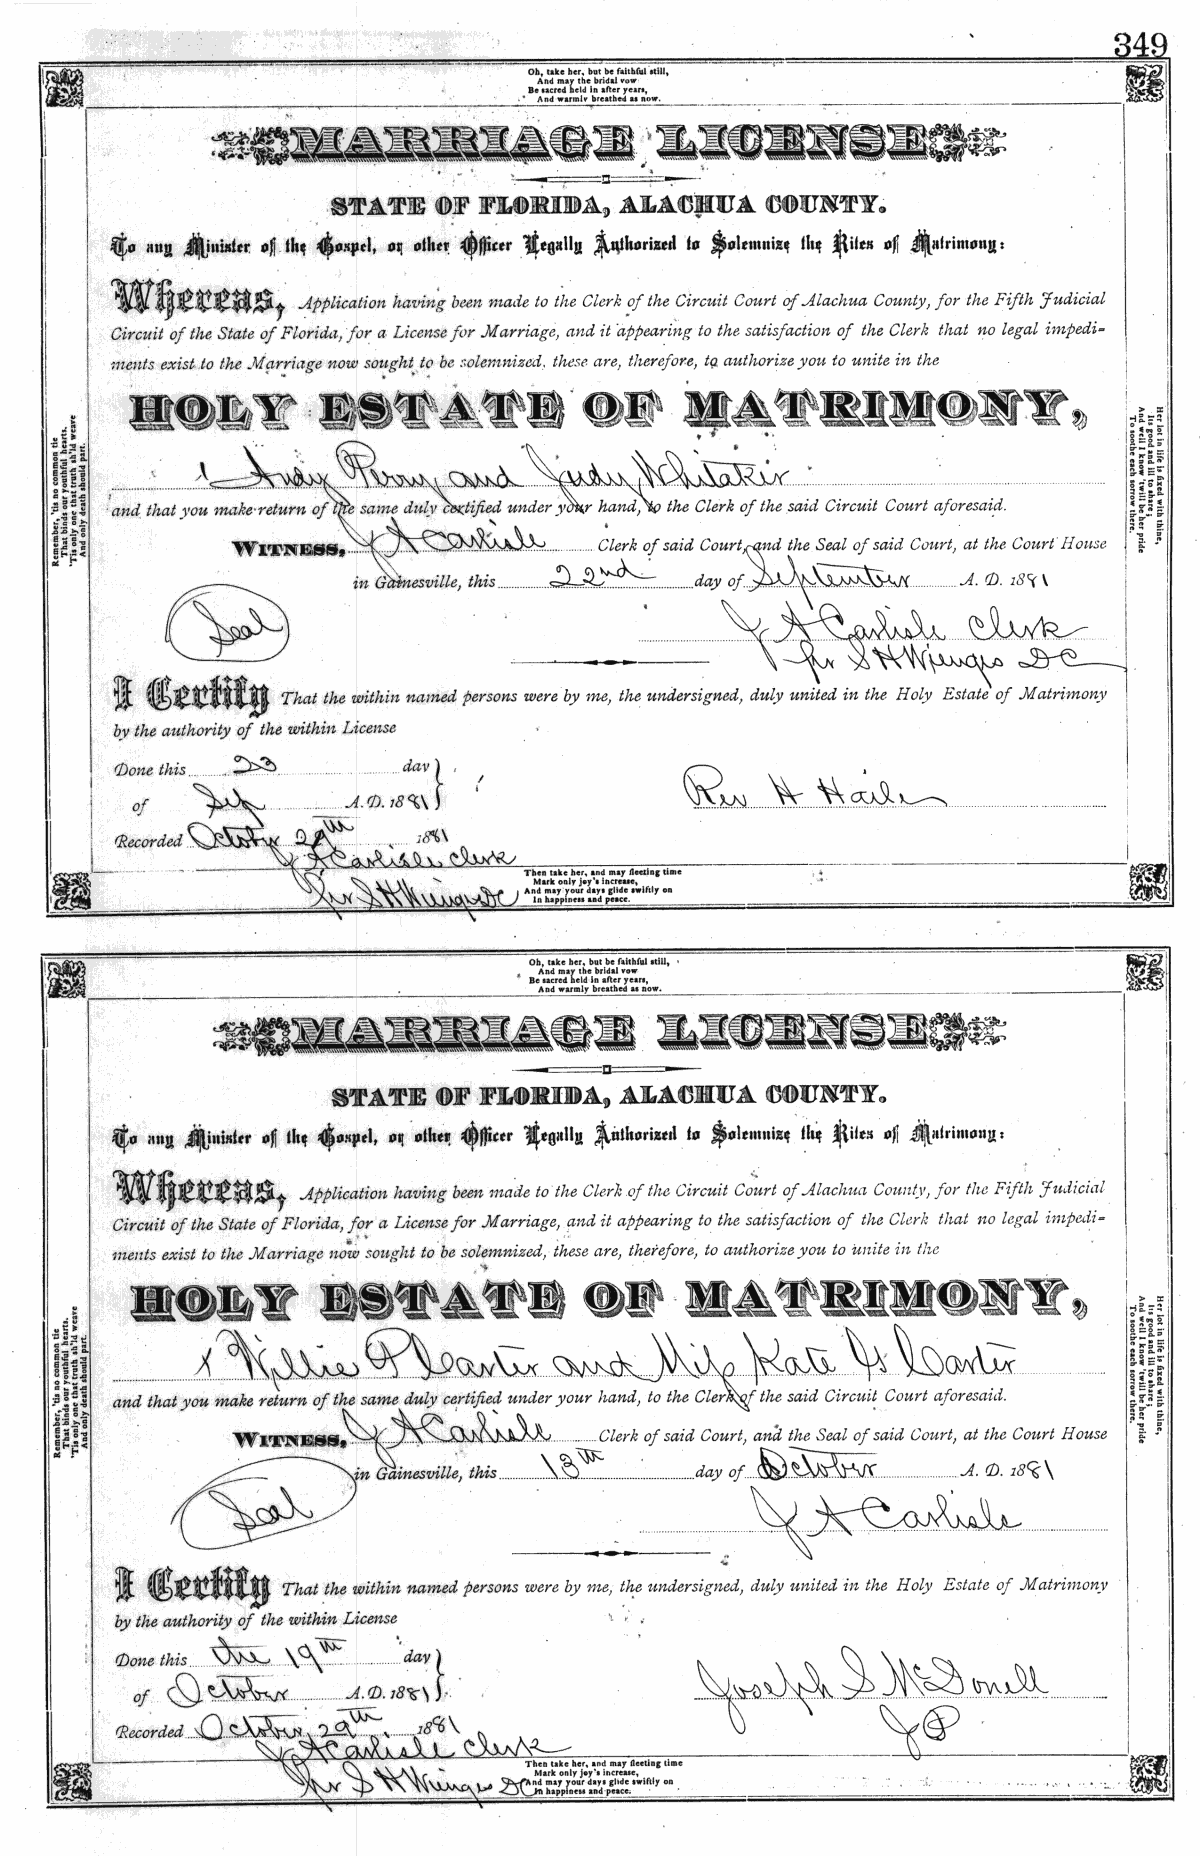 349
Oh, take her, but be faithful still,
And may the bridal vow
Be sacred held in after years,
And warmly breathed as now.
MARRIAGE LICENSE
STATE OF FLORIDA, ALACHUA COUNTY.
To any Minister of the Gospel, or other Officer Legally Authorized to Solemnize the Rites of Matrimony:
Whereas, Application having been made to the Clerk of the Circuit Court of Alachua County, for the Fifth Judicial
Circuit of the State of Florida, for a License for Marriage, and it appearing to the satisfaction of the Clerk that no legal impedi-
ments exist to the Marriage now sought to be solemnized, these are, therefore, to authorize you to unite in the
HOLY ESTATE OF MATRIMONY,
Andy Perry and Judy Whitaker
and that you make return of the same duly certified under your hand, to the Clerk of the said Circuit Court aforesaid.
WITNESS, J A Carlisle Clerk of said Court, and the Seal of said Court, at the Court House
in Gainesville, this 22nd day of September A. D. 1881
Seal
J A Carlisle Clerk
pr S H Wienges DC
I Certify That the within named persons were by me, the undersigned, duly united in the Holy Estate of Matrimony
by the authority of the within License
Done this 23 day
of Sep A. D. 1881
Rev H Haile
Recorded October 29th 1881
J A Carlisle Clerk
pr S H Wienges DC
Then take her, and may fleeting time
Mark only joy's increase,
And may your days glide swiftly on
In happiness and peace.
Remember, 'tis no common tie
That binds our youthful hearts.
'Tis only one that truth sh'ld weave
And only death should part.
Her lot in life is fixed with thine,
Its good and ill to share;
And well I know 'twill be her pride
To soothe each sorrow there.
Oh, take her, but be faithful still,
And may the bridal vow
Be sacred held in after years,
And warmly breathed as now.
MARRIAGE LICENSE
STATE OF FLORIDA, ALACHUA COUNTY.
To any Minister of the Gospel, or other Officer Legally Authorized to Solemnize the Rites of Matrimony:
Whereas, Application having been made to the Clerk of the Circuit Court of Alachua County, for the Fifth Judicial
Circuit of the State of Florida, for a License for Marriage, and it appearing to the satisfaction of the Clerk that no legal impedi-
ments exist to the Marriage now sought to be solemnized, these are, therefore, to authorize you to unite in the
HOLY ESTATE OF MATRIMONY,
x Willie P Carter and Miss Kate G Carter
and that you make return of the same duly certified under your hand, to the Clerk of the said Circuit Court aforesaid.
WITNESS, J A Carlisle Clerk of said Court, and the Seal of said Court, at the Court House
in Gainesville, this 13th day of October A. D. 1881
Seal
J A Carlisle
I Certify That the within named persons were by me, the undersigned, duly united in the Holy Estate of Matrimony
by the authority of the within License
Done this the 19th day
of October A. D. 1881
Joseph S McDonell
JP
Recorded October 29th 1881
J A Carlisle Clerk
pr S H Wienges DC
Then take her, and may fleeting time
Mark only joy's increase,
And may your days glide swiftly on
In happiness and peace.
Remember, 'tis no common tie
That binds our youthful hearts.
'Tis only one that truth sh'ld weave
And only death should part.
Her lot in life is fixed with thine,
Its good and ill to share;
And well I know 'twill be her pride
To soothe each sorrow there.